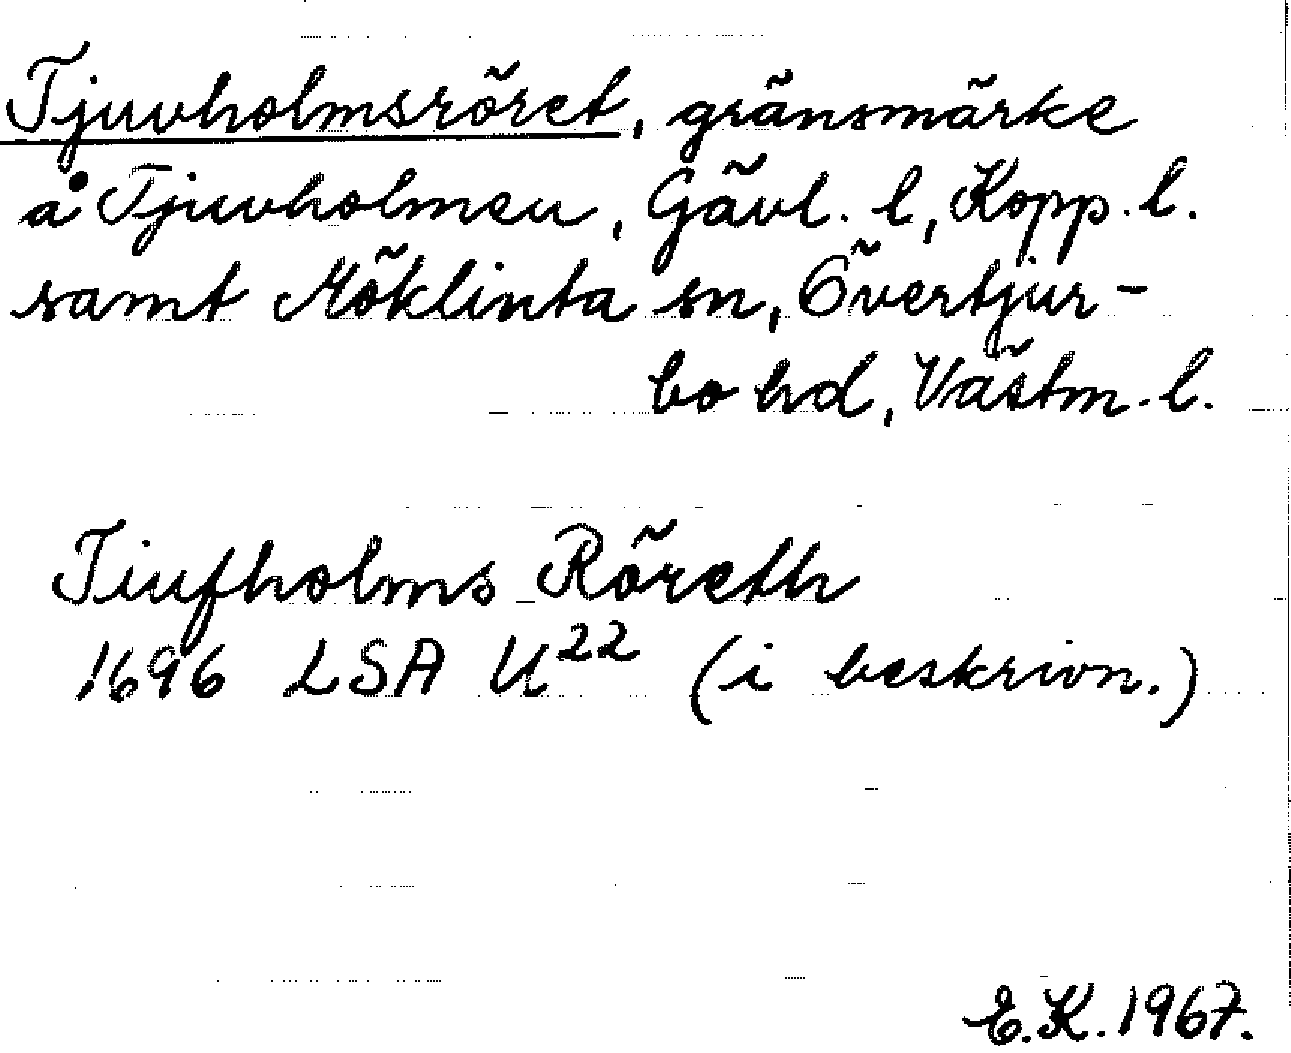 Tjuvholmsröret, gränsmärke
å Tjuvholmen, Gävl. l, Kopp. l.
samt Möklinta sn, Övertjur-
bo hd, Västm. l.
Tiufholms Röreth
1696 LSA U²² (i beskrivn.)
E.K. 1967.